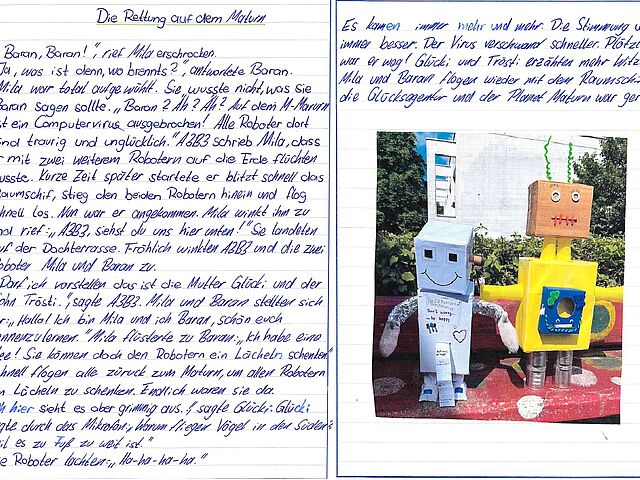 Die Rettung auf dem Maturn
Baran, Baran!", rief Mila erschrocken.
Ja, was ist denn, wo brennts?", antwortete Baran.
Mila war total aufgewühlt. Sie wusste nicht, was sie
Baran sagen sollte. „Baran? Äh? Äh? Auf dem M-Marurn
ist ein Computervirus ausgebrochen! Alle Roboter dort
sind traurig und unglücklich." A3B3 schrieb Mila, dass
er mit zwei weiterem Robotern auf die Erde flüchten
musste. Kurze Zeit später startete er blitzt schnell das
Raumschif, stieg den beiden Robotern hinein und flog
schnell los. Nun war er angekommen. Mila winkt ihm zu
und rief: „A3B3, siehst du uns hier unten!" Sie landeten
auf der Dachterrasse. Fröhlich winkten A3B3 und die zwei
Roboter Mila und Baran zu.
Darf ich vorstellen das ist die Mutter Glücki und der
Sohn Trösti.", sagte A3B3. Mila und Baran stellten sich
„Hallo! Ich bin Mila und ich Baran, schön euch
kennenzulernen." Mila flüsterte zu Baran: „Ich habe eine
Idee! Sie können doch den Robotern ein Lächeln schenken"
Schnell flogen alle zürück zum Maturn, um allen Robotern
ein Lächeln zu schenken. Endlich waren sie da.
hier sieht es aber grimmig aus.", sagte Glücki. Glücki
sagte durch das Mikrofon: „Warum fliegen Vögel in den Süden?
Weil es zu Fuß zu weit ist."
Die Roboter lachten: „Ha-ha-ha-ha."
Es kamen immer mehr und mehr. Die Stimmung
immer besser. Der Virus verschwand schneller.
war er weg! Glücki und Trösti erzählten mehr
Mila und Baran flogen wieder mit dem Raumschiff
die Glücksagentur und der Planet Maturn war
Don't worry
be happy